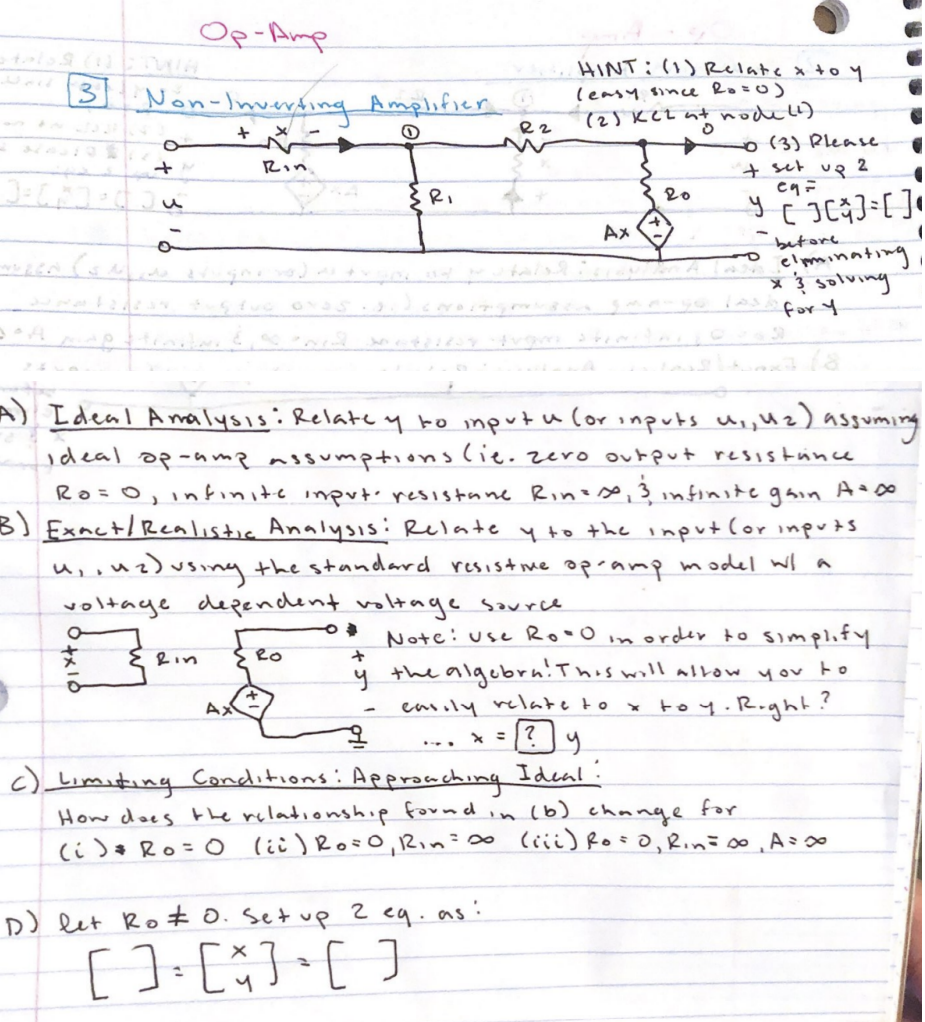 Op-Amp
HINT: (1) Relate x to y
(easy, since Ro=0)
3 Non-Inverting Amplifier
(2) KCL at node (1)
+ x -
①
R2
0
(3) Please
+
Rin
+ set up 2
eq=
u
R1
Ro
y [ ][x y]=[ ]
-
Ax
+
-
- before
eliminating
x & solving
for y
A) Ideal Analysis: Relate y to input u (or inputs u1, u2) assuming
ideal op-amp assumptions (ie. zero output resistance
Ro=0, infinite input resistane Rin=∞, & infinite gain A=∞
B) Exact/Realistic Analysis: Relate y to the input (or inputs
u1, u2) using the standard resistive op-amp model w/ a
voltage dependent voltage source
Note: Use Ro=0 in order to simplify
+ x -
Rin
Ro
+ y -
the algebra! This will allow you to
Ax
+
-
easily relate to x to y. Right?
... x = ? y
C) Limiting Conditions: Approaching Ideal:
How does the relationship found in (b) change for
(i) Ro=0 (ii) Ro=0, Rin=∞ (iii) Ro=0, Rin=∞, A=∞
D) let Ro≠0. Set up 2 eq. as:
[ ]=[x y]=[ ]